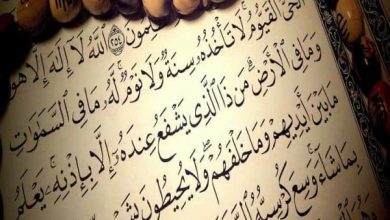 لِمُونَ ٢٥٤ ٱللَّهُ لَآ إِلَٰهَ إِلَّا هُوَ
ٱلْحَىُّ ٱلْقَيُّومُ لَا تَأْخُذُهُۥ سِنَةٌ وَلَا نَوْمٌ لَّهُۥ مَا فِى ٱلسَّمَٰوَٰتِ
وَمَا فِى ٱلْأَرْضِ مَن ذَا ٱلَّذِى يَشْفَعُ عِندَهُۥٓ إِلَّا بِإِذْنِهِۦ يَعْلَمُ
مَا بَيْنَ أَيْدِيهِمْ وَمَا خَلْفَهُمْ وَلَا يُحِيطُونَ بِشَىْ
بِمَا شَآءَ وَسِعَ كُرْسِيُّهُ